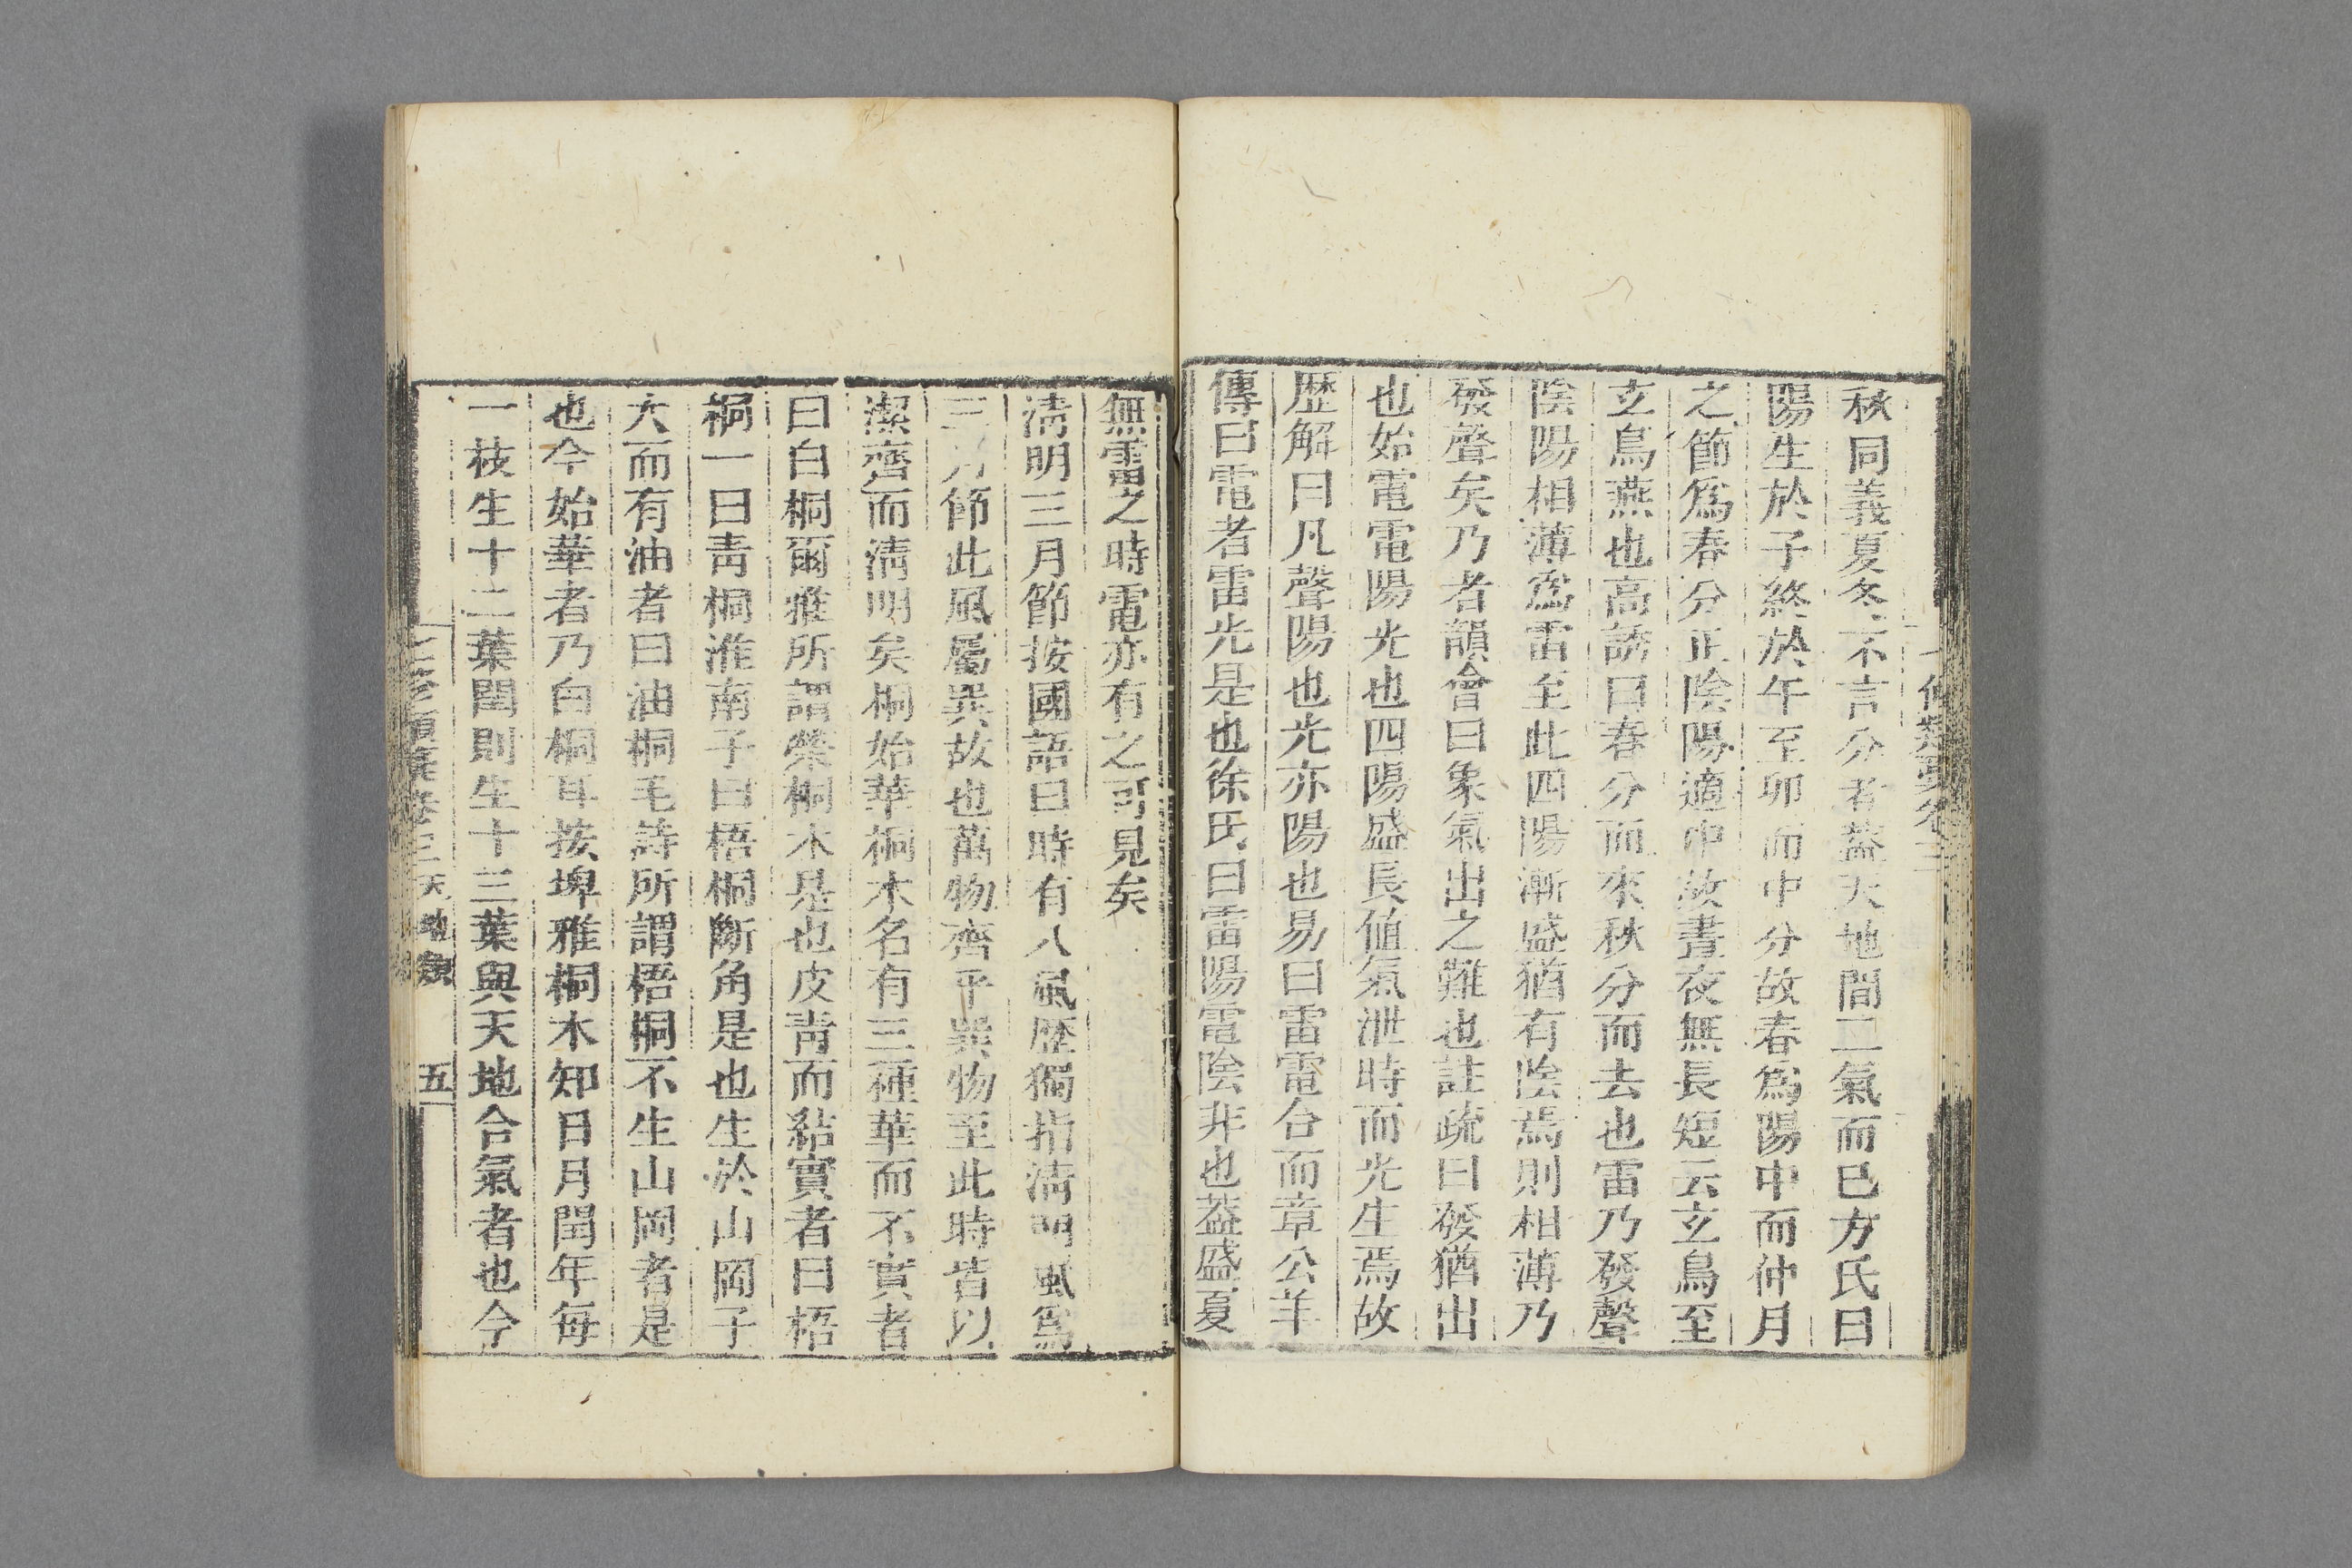 秋同義夏冬不言分者蓋天地間二氣而已方氏曰
陽生於子終於午至卯而中分故春爲陽中而仲月
之節爲春分正陰陽適中故晝夜無長短云玄鳥至
玄鳥燕也高誘曰春分而來秋分而去也雷乃發聲
陰陽相薄爲雷至此四陽漸盛猶有陰焉則相薄乃
發聲矣乃者韻會曰象氣出之難也註疏曰發猶出
也始電電陽光也四陽盛長值氣泄時而光生焉故
歷解曰凡聲陽也光亦陽也易曰雷電合而章公羊
傳曰電者雷光是也徐氏曰雷陽電陰非也蓋盛夏
無雷之時電亦有之可見矣
清明三月節按國語曰時有八風歷獨指清明風爲
三月節此風屬巽故也萬物齊乎巽物至此時皆以
潔齊而清明矣桐始華桐木名有三種華而不實者
曰白桐爾雅所謂榮桐木是也皮青而結實者曰梧
桐一曰青桐淮南子曰梧桐斷角是也生於山岡子
大而有油者曰油桐毛詩所謂梧桐不生山岡者是
也今始華者乃白桐耳按埤雅桐木知日月閏年每
一枝生十二葉閏則生十三葉與天地合氣者也今
七修類稾卷三 天地類 五